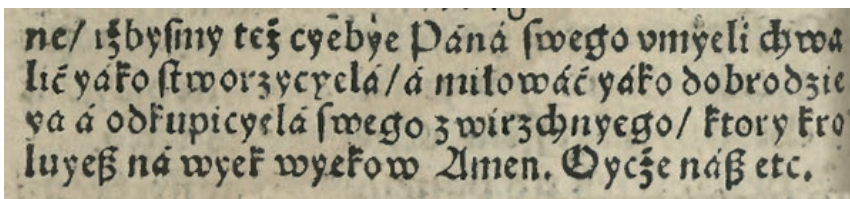 ne/ iżbyſmy też cyebye Páná ſwego vmyeli chwa
lić yáko ſtworzycyelá/ á miłowáć yáko dobrodzie
ya á odkupicyelá ſwego zwirzchnyego/ ktory kro
luyeß ná wyek wyekow Amen. Oycże náß etc.